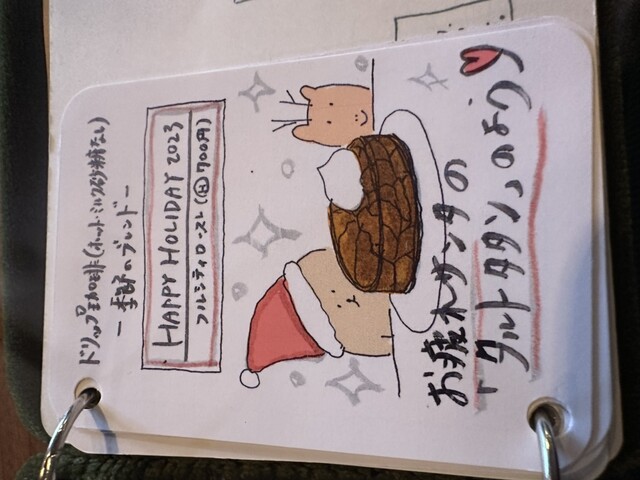 ドリップ珈琲(ホット・ミルク砂糖なし)
ー季節のブレンドー
HAPPY HOLIDAY 2023
フルシティロースト(H 700円)
お疲れサンタの
「タルトタタン」のよう♥